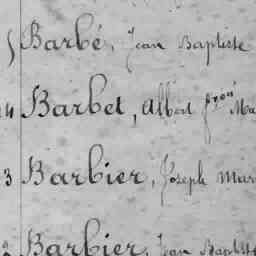 Barbé, Jean Baptiste
Barbet, Albert
3 Barbier, Joseph Mar
Barbier, Jean Baptist